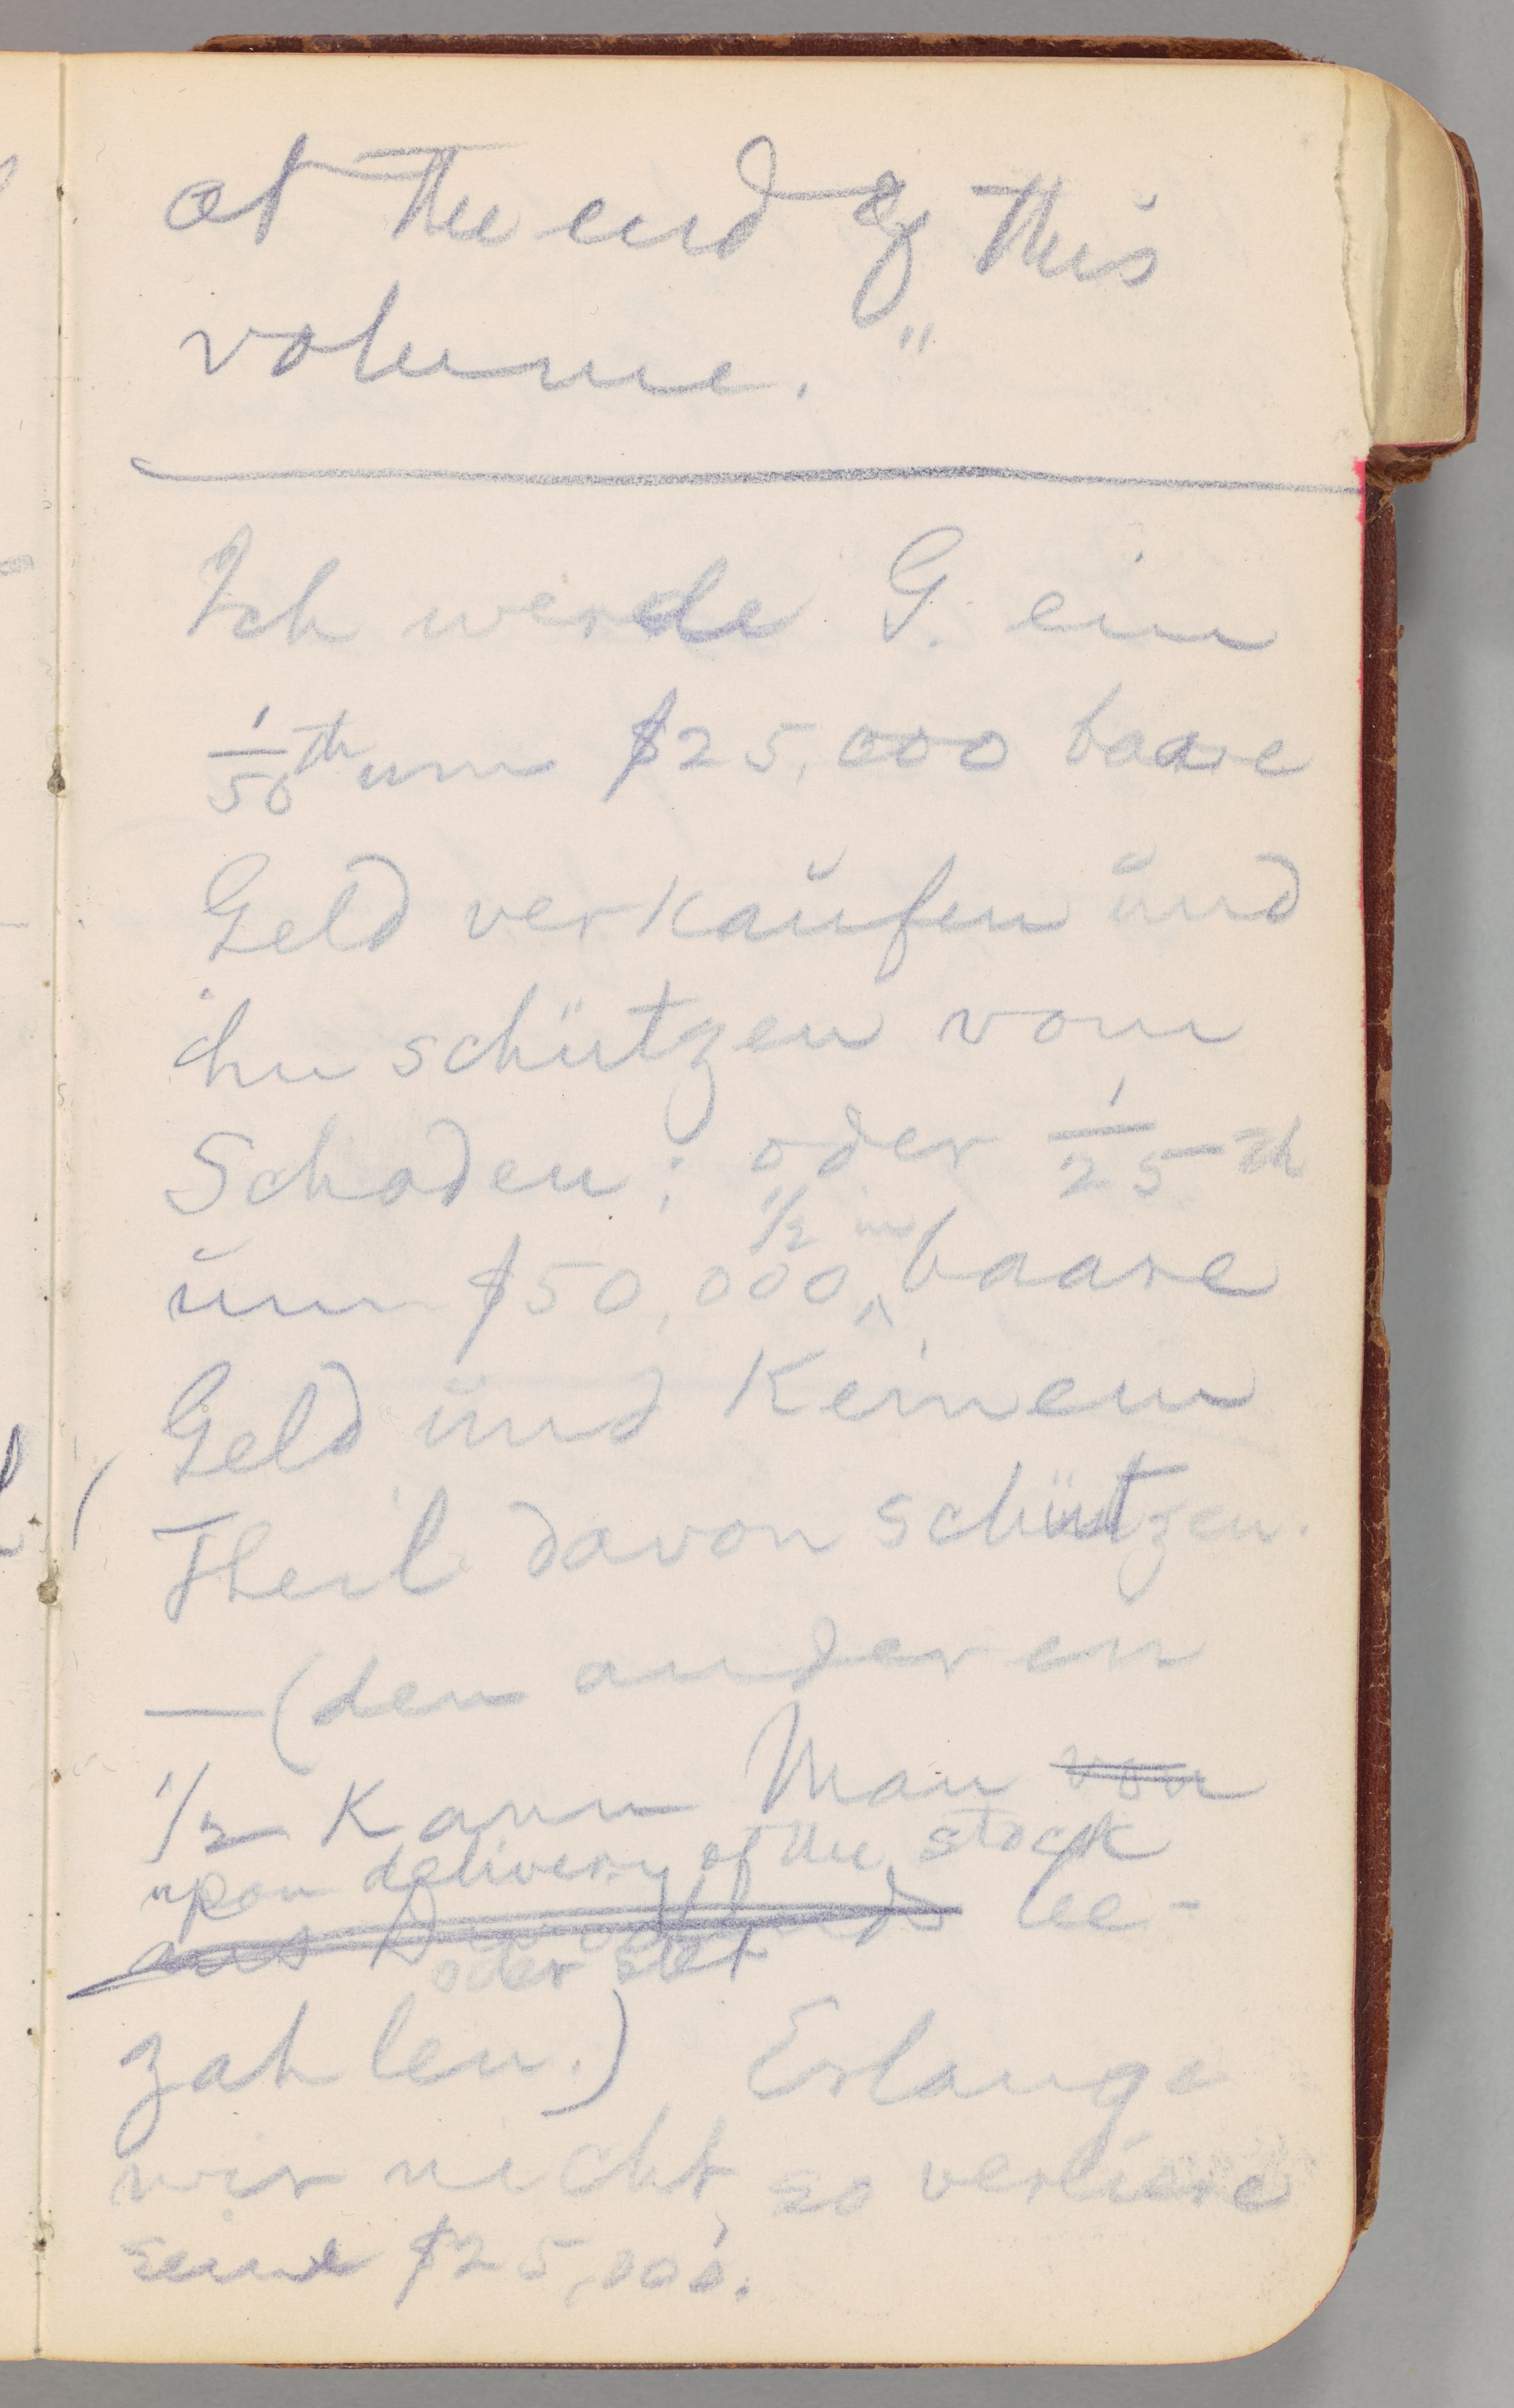 at the end of this
volume."
Ich werde G. ein
1/50th um $25,000 baare
Geld verkaŭfen ŭnd
ihn schützen vom
Schaden; oder 1/25th
ŭm $50,000, 1/2 in baare
Geld ŭnd Keinem
Theil davon schützen.
— (den anderen
1/2 Kann Man von
upon delivery of the stock
aus Dividends be-
oder
zahlen.) Erlange
wir nicht, so verliere
seine $25,000.